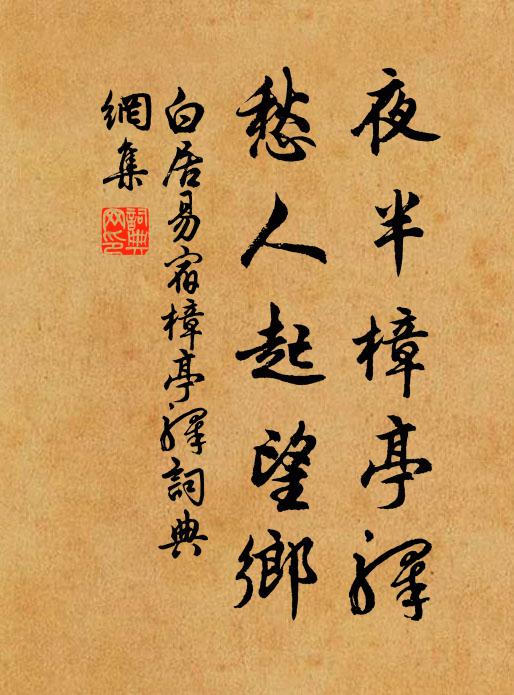 夜半樟亭驛
愁人起望鄉
白居易宿樟亭驛詞典
網集
詞典
网印